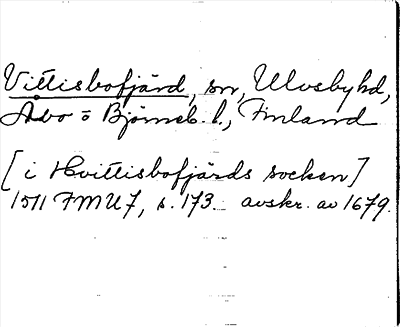 Vittisbofjärd, sn, Ulvsby hd,
Åbo o Björneb. l., Finland
[i Hvittisbofjärds socken]
1511 FMU 7, s. 173 avskr. av 1679.